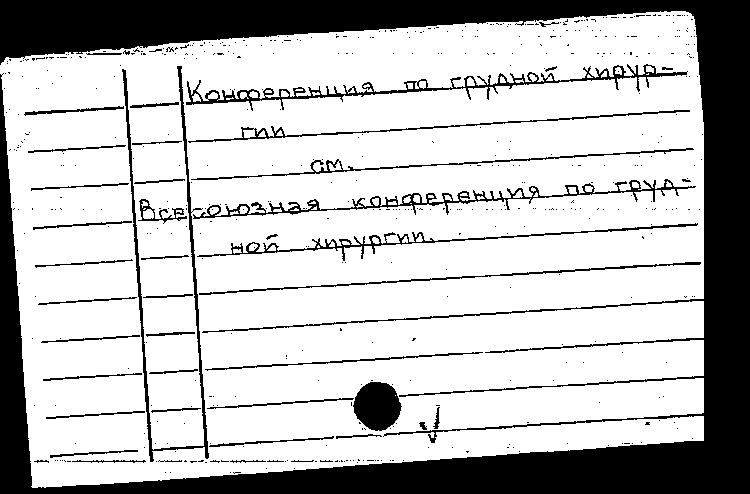 Конференция по грудной хирур-
гии
см.
Всесоюзная конференция по груд-
ной хирургии.